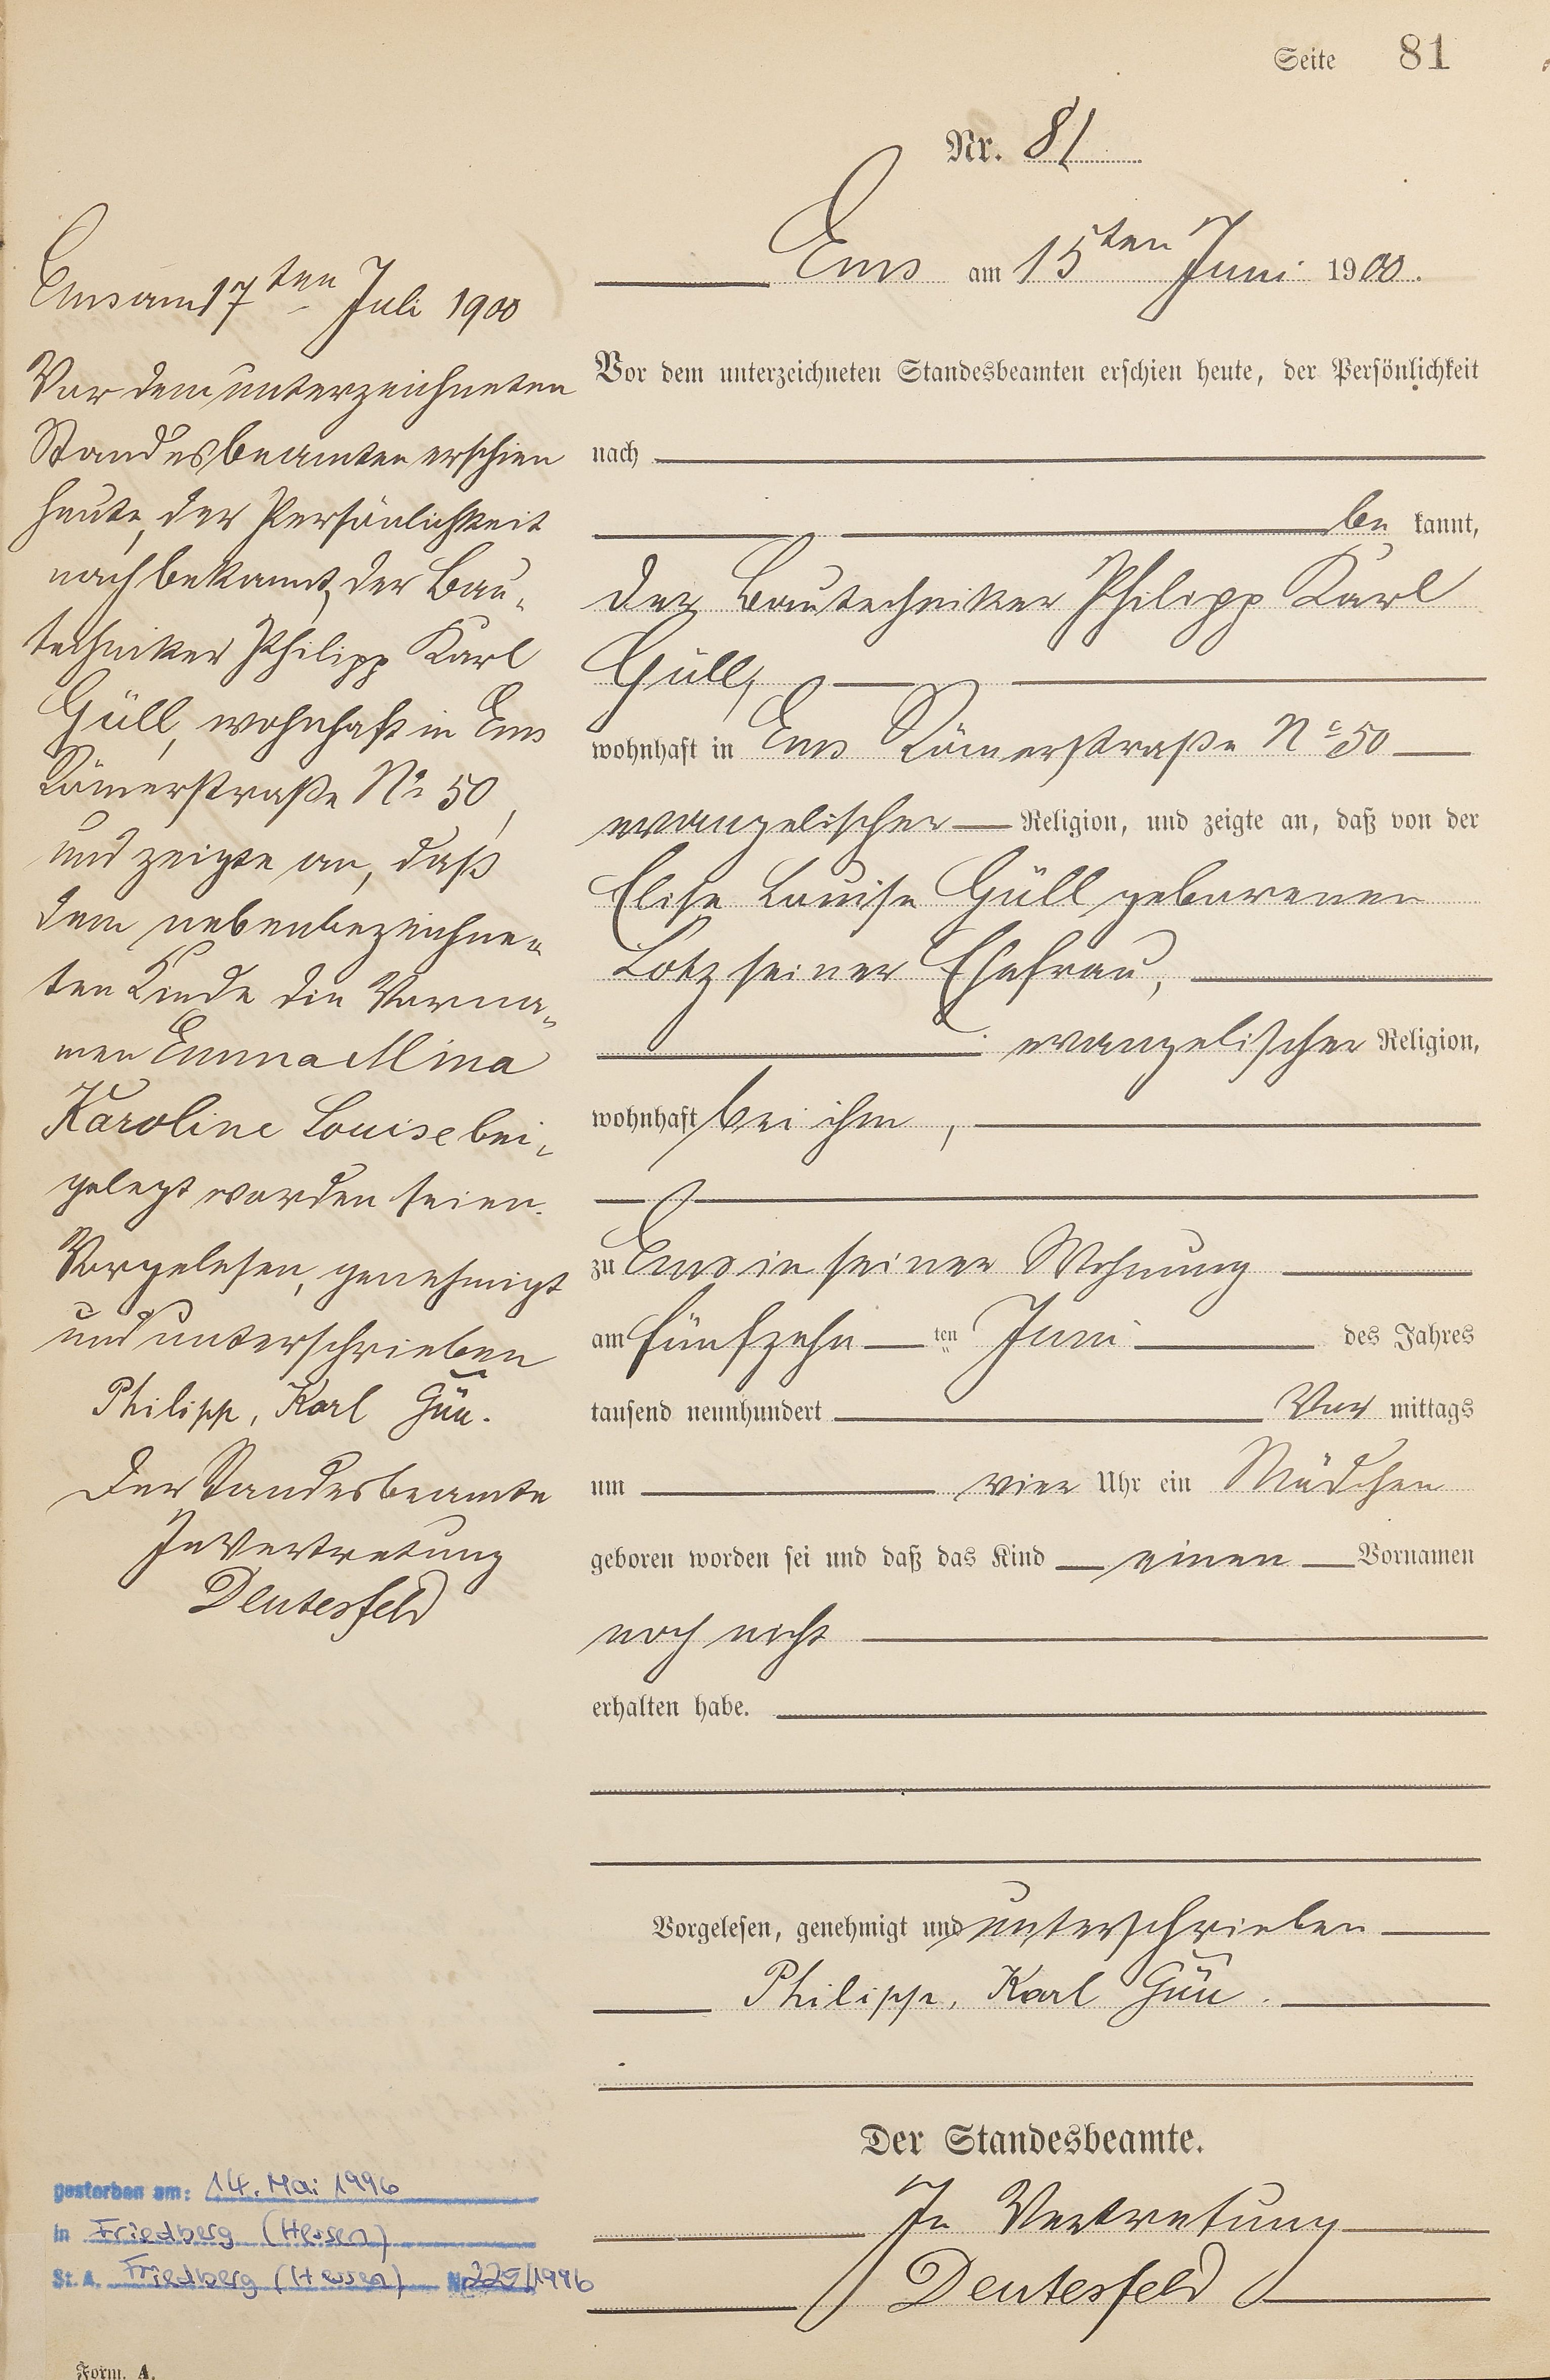 Seite 81
Nr. 81
Ems am 15ten Juni 1900.
Vor dem unterzeichneten Standesbeamten erschien heute, der Persönlichkeit
nach
be kannt,
der Bautechniker Philipp Karl
Güll,
wohnhaft in Ems Römerstraße No 50
evangelischer Religion, und zeigte an, daß von der
Elise Louise Güll geborenen
Lotz seiner Ehefrau,
evangelischer Religion,
wohnhaft bei ihm,
zu Ems in seiner Wohnung
am fünfzehn ten Juni des Jahres
tausend neunhundert Vor mittags
um vier Uhr ein Mädchen
geboren worden sei und daß das Kind einen Vornamen
noch nicht
erhalten habe.
Vorgelesen, genehmigt und unterschrieben
Philipp, Karl Güll.
Der Standesbeamte.
In Vertretung
Deutesfeld
Ems am 17ten Juli 1900
Vor dem unterzeichneten
Standesbeamten erschien
heute, der Persönlichkeit
nach bekannt, der Bau-
techniker Philipp Karl
Güll, wohnhaft in Ems
Römerstraße No 50,
und zeigte an, daß
dem nebenbezeichne-
ten Kinde die Vorna-
men Emma Mina
Karoline Louise bei-
gelegt worden seien.
Vorgelesen, genehmigt
und unterschrieben
Philipp, Karl Güll.
Der Standesbeamte
In Vertretung
Deutesfeld
gestorben am: 14. Mai 1996
in Friedberg (Hessen)
St. A. Friedberg (Hessen) Nr. /1996
Form. A.